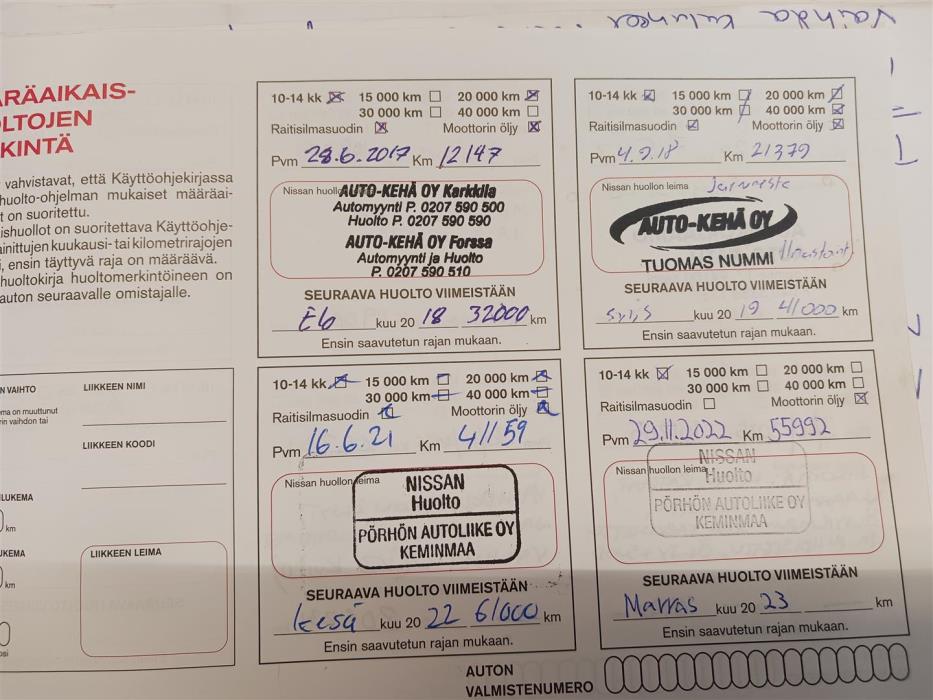 vaihda
ÄRÄAIKAIS-
OLTOJEN
KINTÄ
vahvistavat, että Käyttöohjekirjassa
huolto-ohjelman mukaiset määräai-
t on suoritettu.
ishuollot on suoritettava Käyttöohje-
ainittujen kuukausi- tai kilometrirajojen
, ensin täyttyvä raja on määräävä.
huoltokirja huoltomerkintöineen on
auton seuraavalle omistajalle.
10-14 kk 15 000 km 20 000 km
30 000 km 40 000 km
Raitisilmasuodin Moottorin öljy
Pvm 28.6.2017 Km 12147
Nissan huollon
AUTO-KEHÄ OY Karkkila
Automyynti P. 0207 590 500
Huolto P. 0207 590 590
AUTO-KEHÄ OY Forssa
Automyynti ja Huolto
P. 0207 590 510
SEURAAVA HUOLTO VIIMEISTÄÄN
kuu 20 18 32000 km
Ensin saavutetun rajan mukaan.
10-14 kk 15 000 km 20 000 km
30 000 km 40 000 km
Raitisilmasuodin Moottorin öljy
Pvm 4.9.18 Km 21379
Nissan huollon leima Jarruneste
AUTO-KEHÄ OY
TUOMAS NUMMI Ilmastoint
SEURAAVA HUOLTO VIIMEISTÄÄN
Syys kuu 20 19 41000 km
Ensin saavutetun rajan mukaan.
N VAIHTO
ema on muuttunut
rin vaihdon tai
LUKEMA
km
UKEMA
km
LIIKKEEN NIMI
LIIKKEEN KOODI
LIIKKEEN LEIMA
10-14 kk 15 000 km 20 000 km
30 000 km 40 000 km
Raitisilmasuodin Moottorin öljy
Pvm 16.6.21 Km 41159
Nissan huollon leima
NISSAN
Huolto
PÖRHÖN AUTOLIIKE OY
KEMINMAA
SEURAAVA HUOLTO VIIMEISTÄÄN
Kesä kuu 20 22 61000 km
Ensin saavutetun rajan mukaan.
10-14 kk 15 000 km 20 000 km
30 000 km 40 000 km
Raitisilmasuodin Moottorin öljy
Pvm 29.11.2022 Km 55992
Nissan huollon leima
NISSAN
Huolto
PÖRHÖN AUTOLIIKE OY
KEMINMAA
SEURAAVA HUOLTO VIIMEISTÄÄN
Marras kuu 20 23 km
Ensin saavutetun rajan mukaan.
AUTON
VALMISTENUMERO